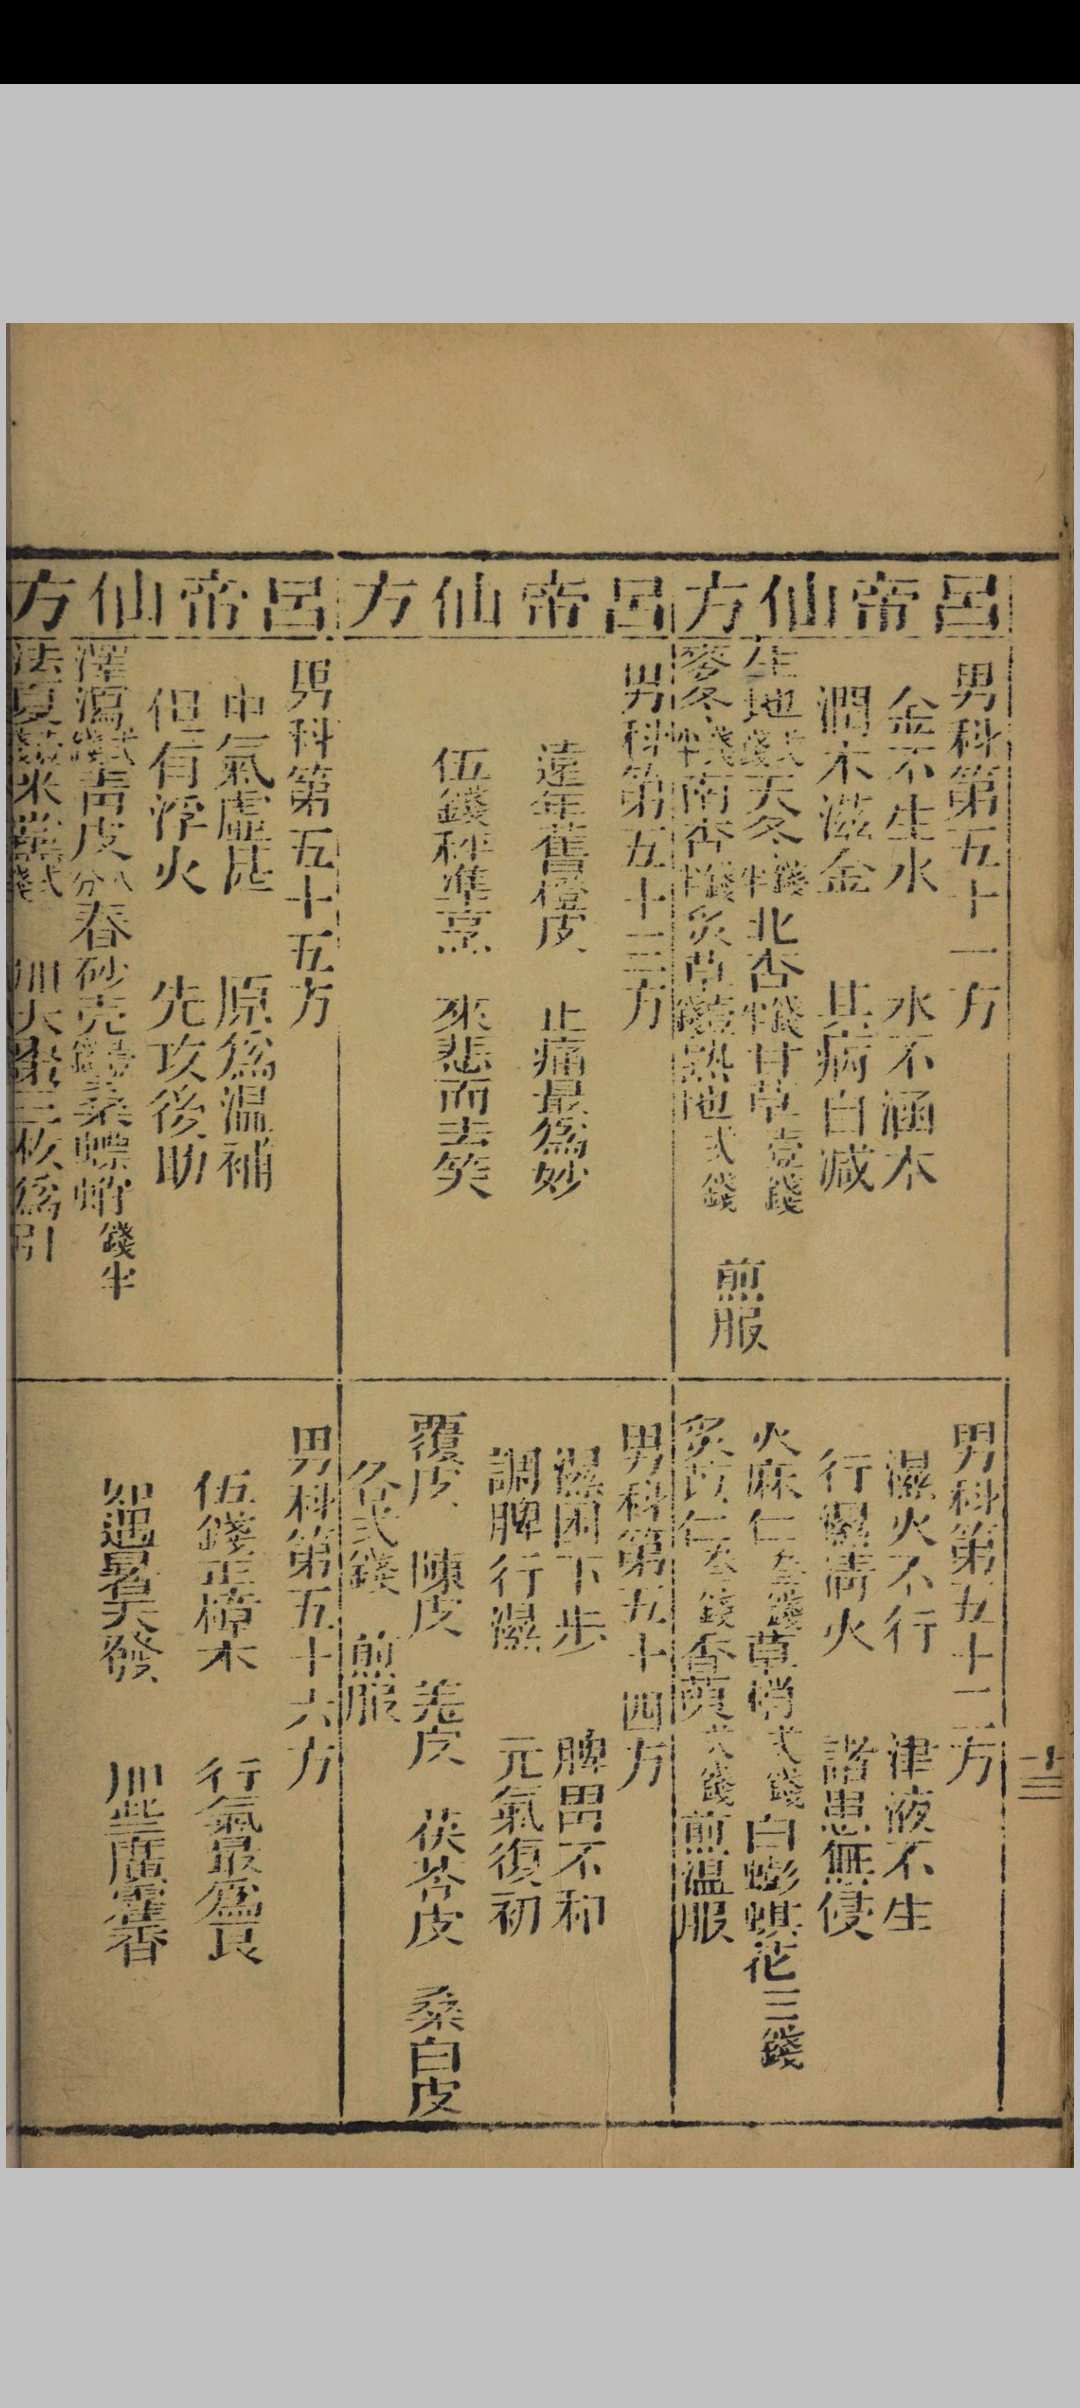 呂帝仙方
男科第五十一方
金不生水　水不涵木
潤木滋金　其病自減
生地弍錢天冬錢半北杏錢半甘草壹錢
麥冬錢半南杏錢半炙草壹錢熟地弍錢
煎服
男科第五十二方
濕火不行　津液不生
行濕清火　諸患無侵
火麻仁叁錢草梢弍錢白蟛蜞花三錢
炙苡仁叁錢香薷弍錢煎溫服
呂帝仙方
男科第五十三方
遠年舊橙皮　止痛最爲妙
伍錢秤準烹　來悲而去笑
男科第五十四方
濕困下步　脾胃不和
調脾行濕　元氣復初
覆皮　陳皮　羗皮　茯苓皮　桑白皮
各弍錢　煎服
呂帝仙方
男科第五十五方
中氣虛甚　原爲溫補
但有浮火　先攻後助
澤瀉弍錢靑皮八分春砂壳壹錢桑螵蛸錢半
法夏
加大棗三枚爲引
男科第五十六方
伍錢正樟木　行氣最爲良
如遇暑天發　加些廣霍香
十三